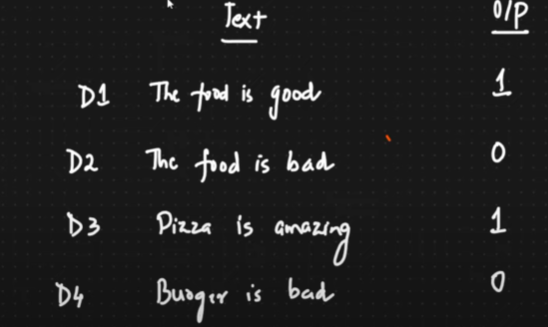 Text O/P
D1 The food is good 1
D2 The food is bad 0
D3 Pizza is amazing 1
D4 Burger is bad 0